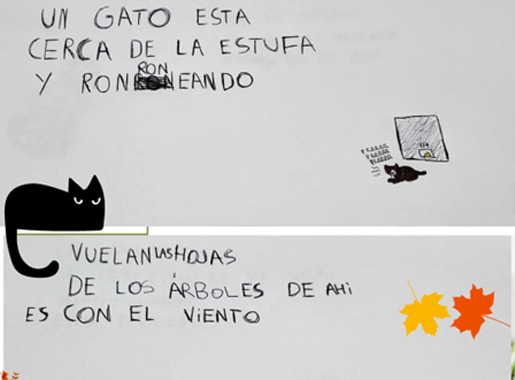 UN GATO ESTA
CERCA DE LA ESTUFA
Y RONRONEANDO
VUELAN LAS HOJAS
DE LOS ÁRBOLES DE AHI
ES CON EL VIENTO